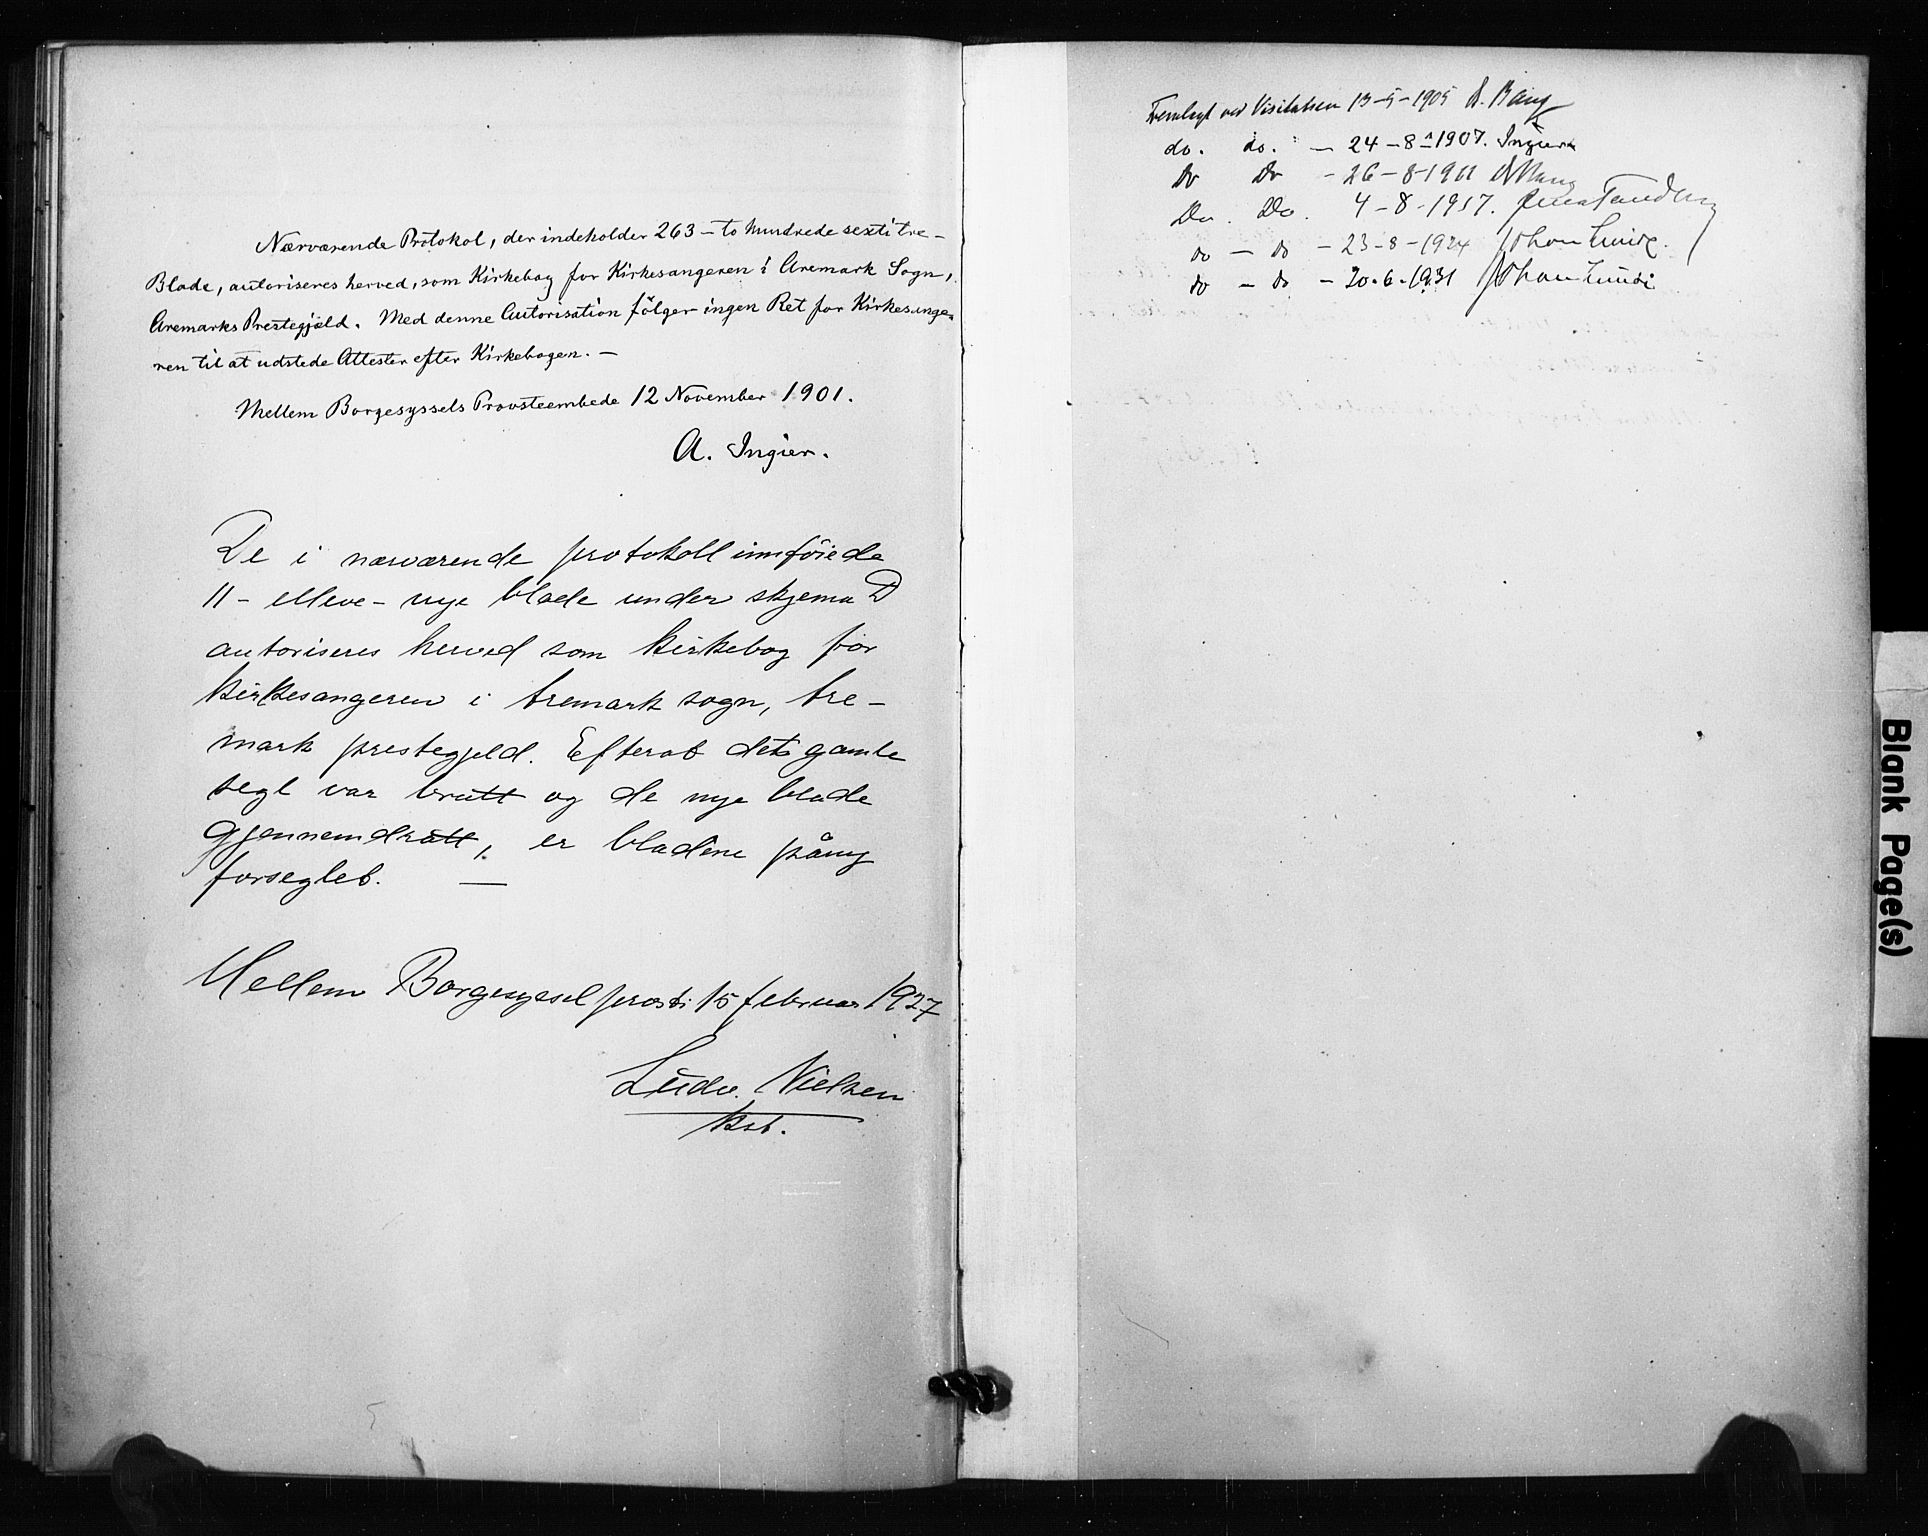 Nærværende Protokol, der indeholder 263 – to hundrede sexti tre –
Blade, autoriseres herved, som Kirkebog for Kirkesangeren i Aremark Sogn,
Aremarks Prestegjæld. Med denne Autorisation følger ingen Ret for Kirkesange-
ren til at udstede Attester efter Kirkebogen. –
Mellem Borgesyssels Provsteembede 12 November 1901.
A. Ingier.
De i nærværende protokoll innføiede
11 – elleve – nye blade under skjema D
autoriseres herved som kirkebog for
kirkesangeren i Aremark sogn, Are-
mark prestegjeld. Efterat det gamle
segl var brutt og de nye blade
gjennemdratt, er bladene påny
forseglet. —
Mellem Borgesyssel prosti 15 februar 1927
Ludv. Nielsen
kst.
Fremlagt ved Visitatsen 13-5-1905 A. Bang
do. do. – 24-8-1907. Ingier
Do Do – 26-8-1911
Do. Do. 4-8-1917. Jens Tandberg
do – do – 23-8-1924 Johan Lunde.
do – do – 20-6-1931 Johan Lunde
Blank Page(s)